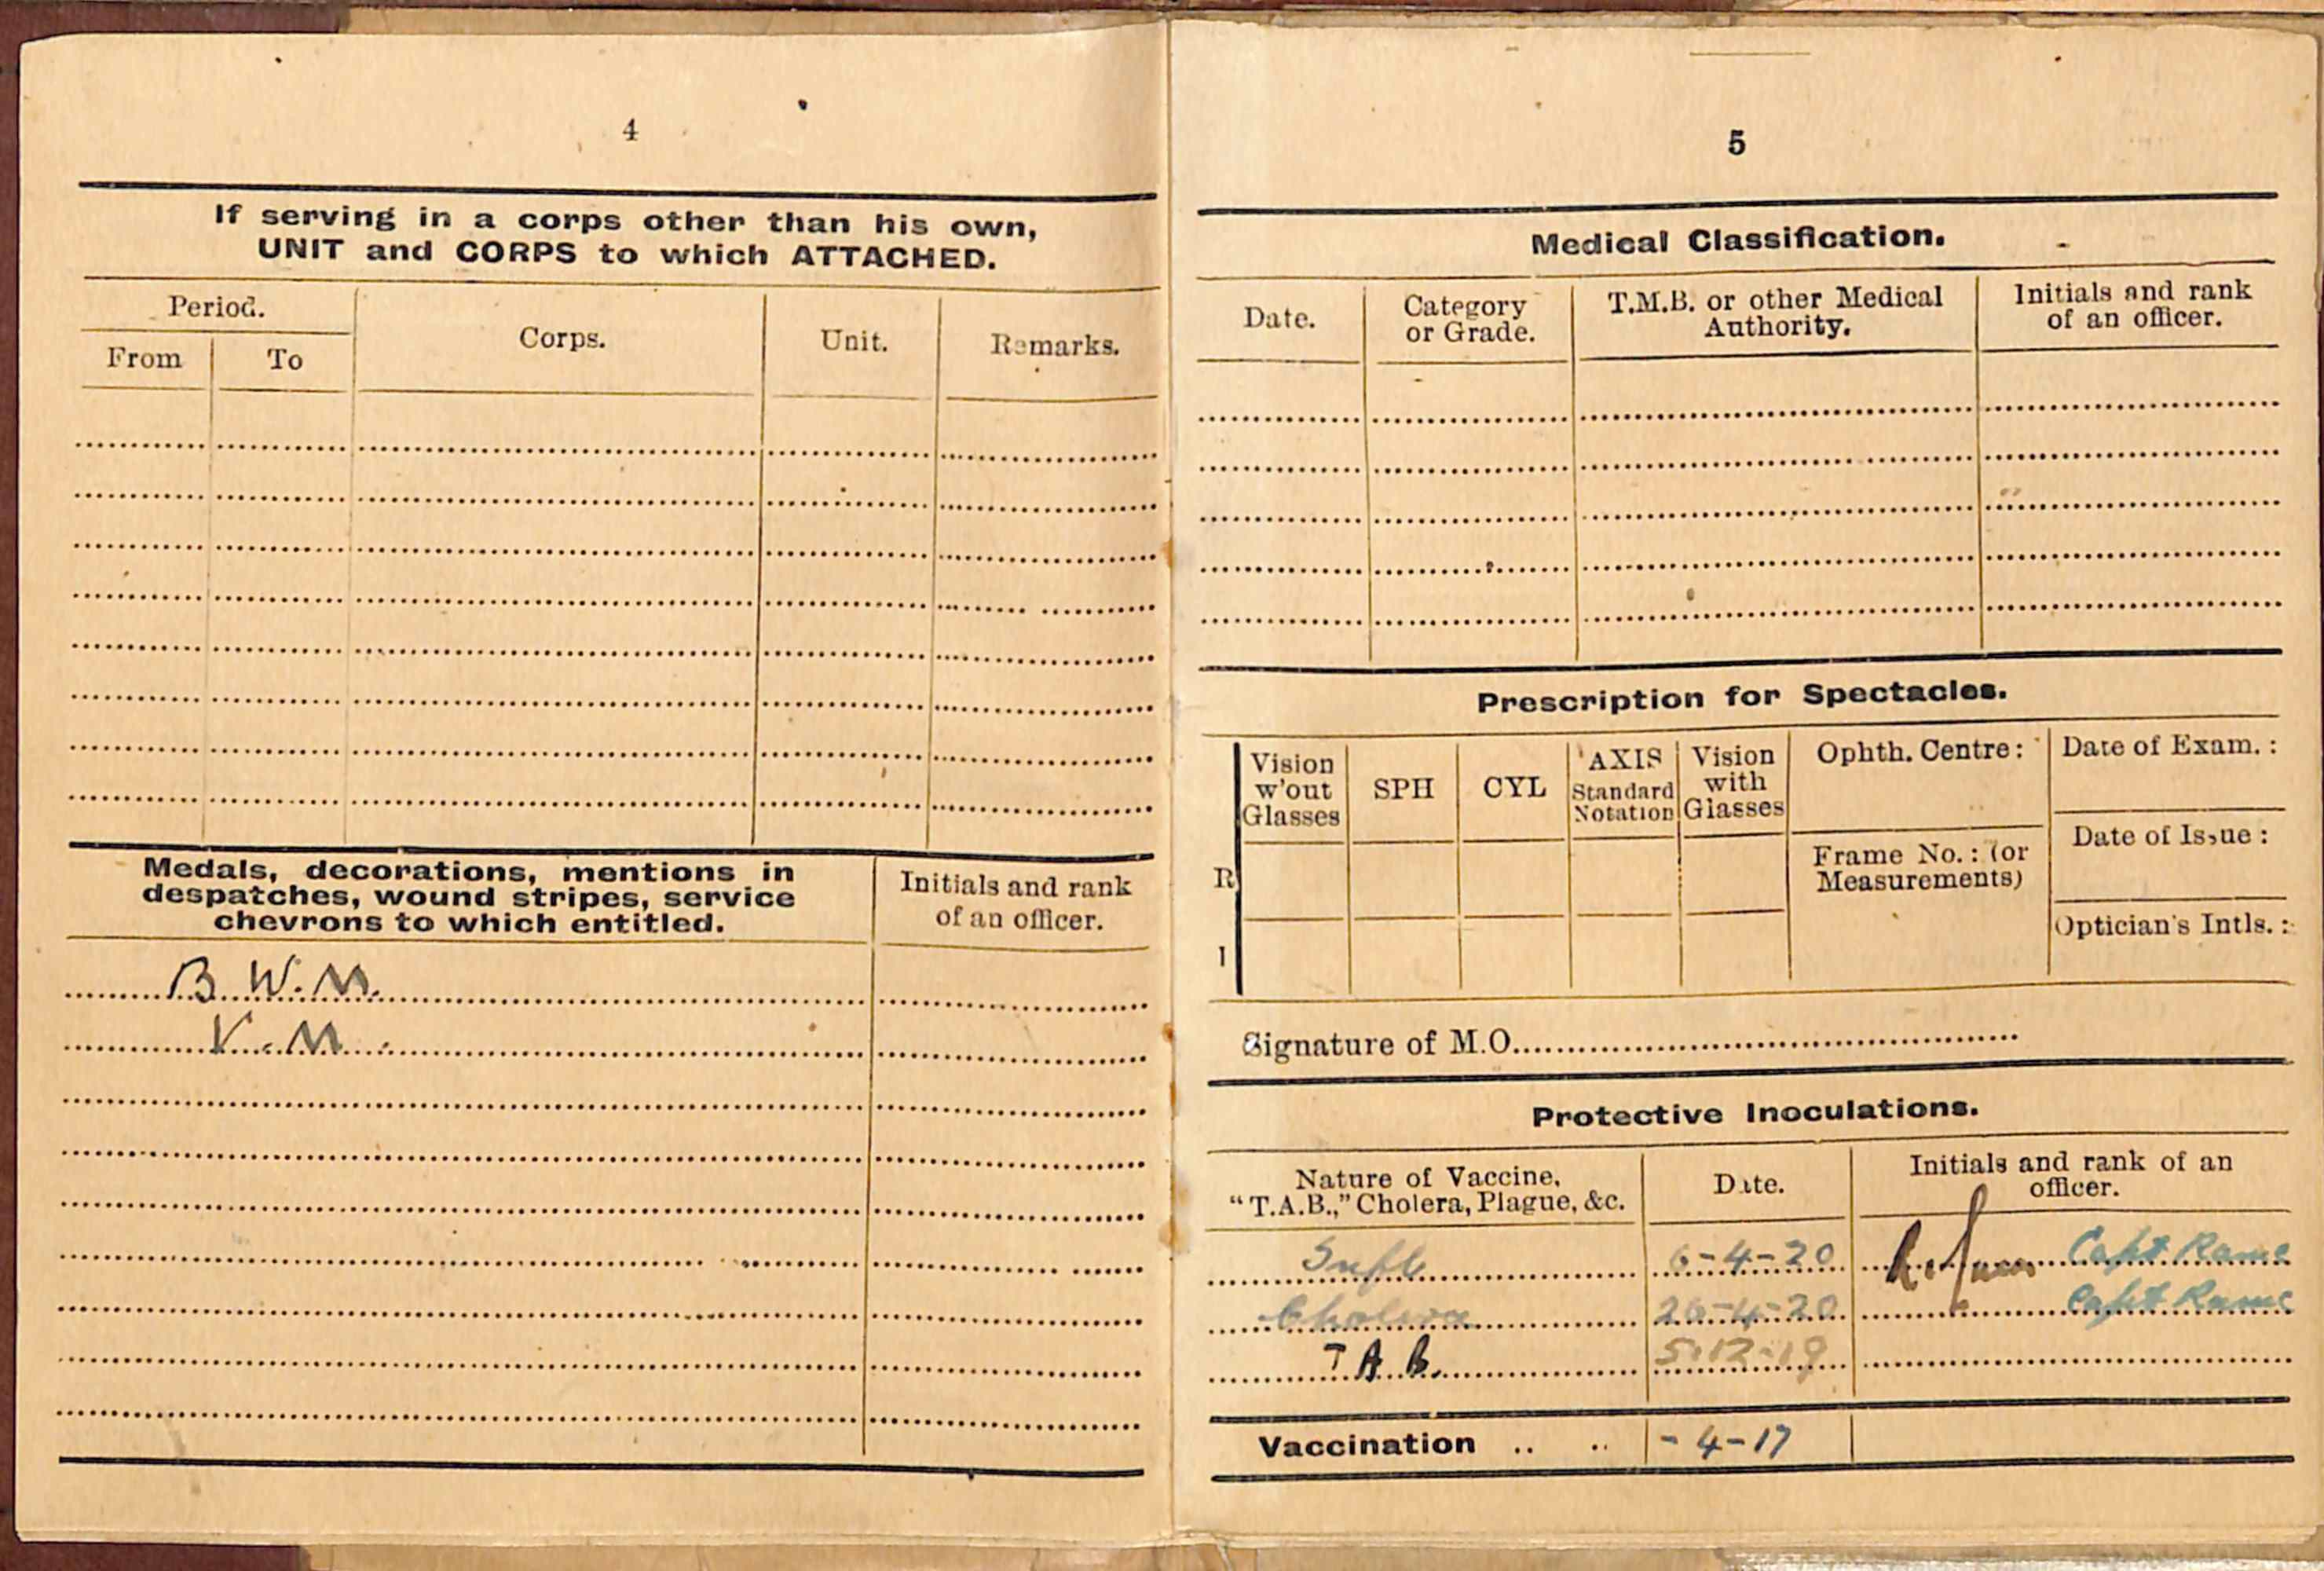 4
If serving in a corps other than his own,
UNIT and CORPS to which ATTACHED.
Period.
From
To
Corps.
Unit.
Remarks.
Medals, decorations, mentions in
despatches, wound stripes, service
chevrons to which entitled.
Initials and rank
of an officer.
B. W. M.
V. M.
5
Medical Classification.
Date.
Category
or Grade.
T.M.B. or other Medical
Authority.
Initials and rank
of an officer.
Prescription for Spectacles.
Vision
w'out
Glasses
SPH
CYL
AXIS
Standard
Notation
Vision
with
Glasses
Ophth. Centre:
Date of Exam. :
Frame No. : (or
Measurements)
Date of Issue :
Optician's Intls. :
R
Signature of M.O.
Protective Inoculations.
Nature of Vaccine,
"T.A.B.," Cholera, Plague, &c.
Date.
Initials and rank of an
officer.
Infl 6-4-20 Capt Ramc
Cholera 26-4-20 Capt Ramc
T A B. 5-12-19
Vaccination .. .. - 4-17